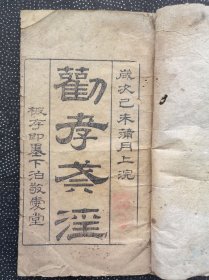 歲次己未蒲月上浣
勸孝戒淫
板存即墨下泊敬堂